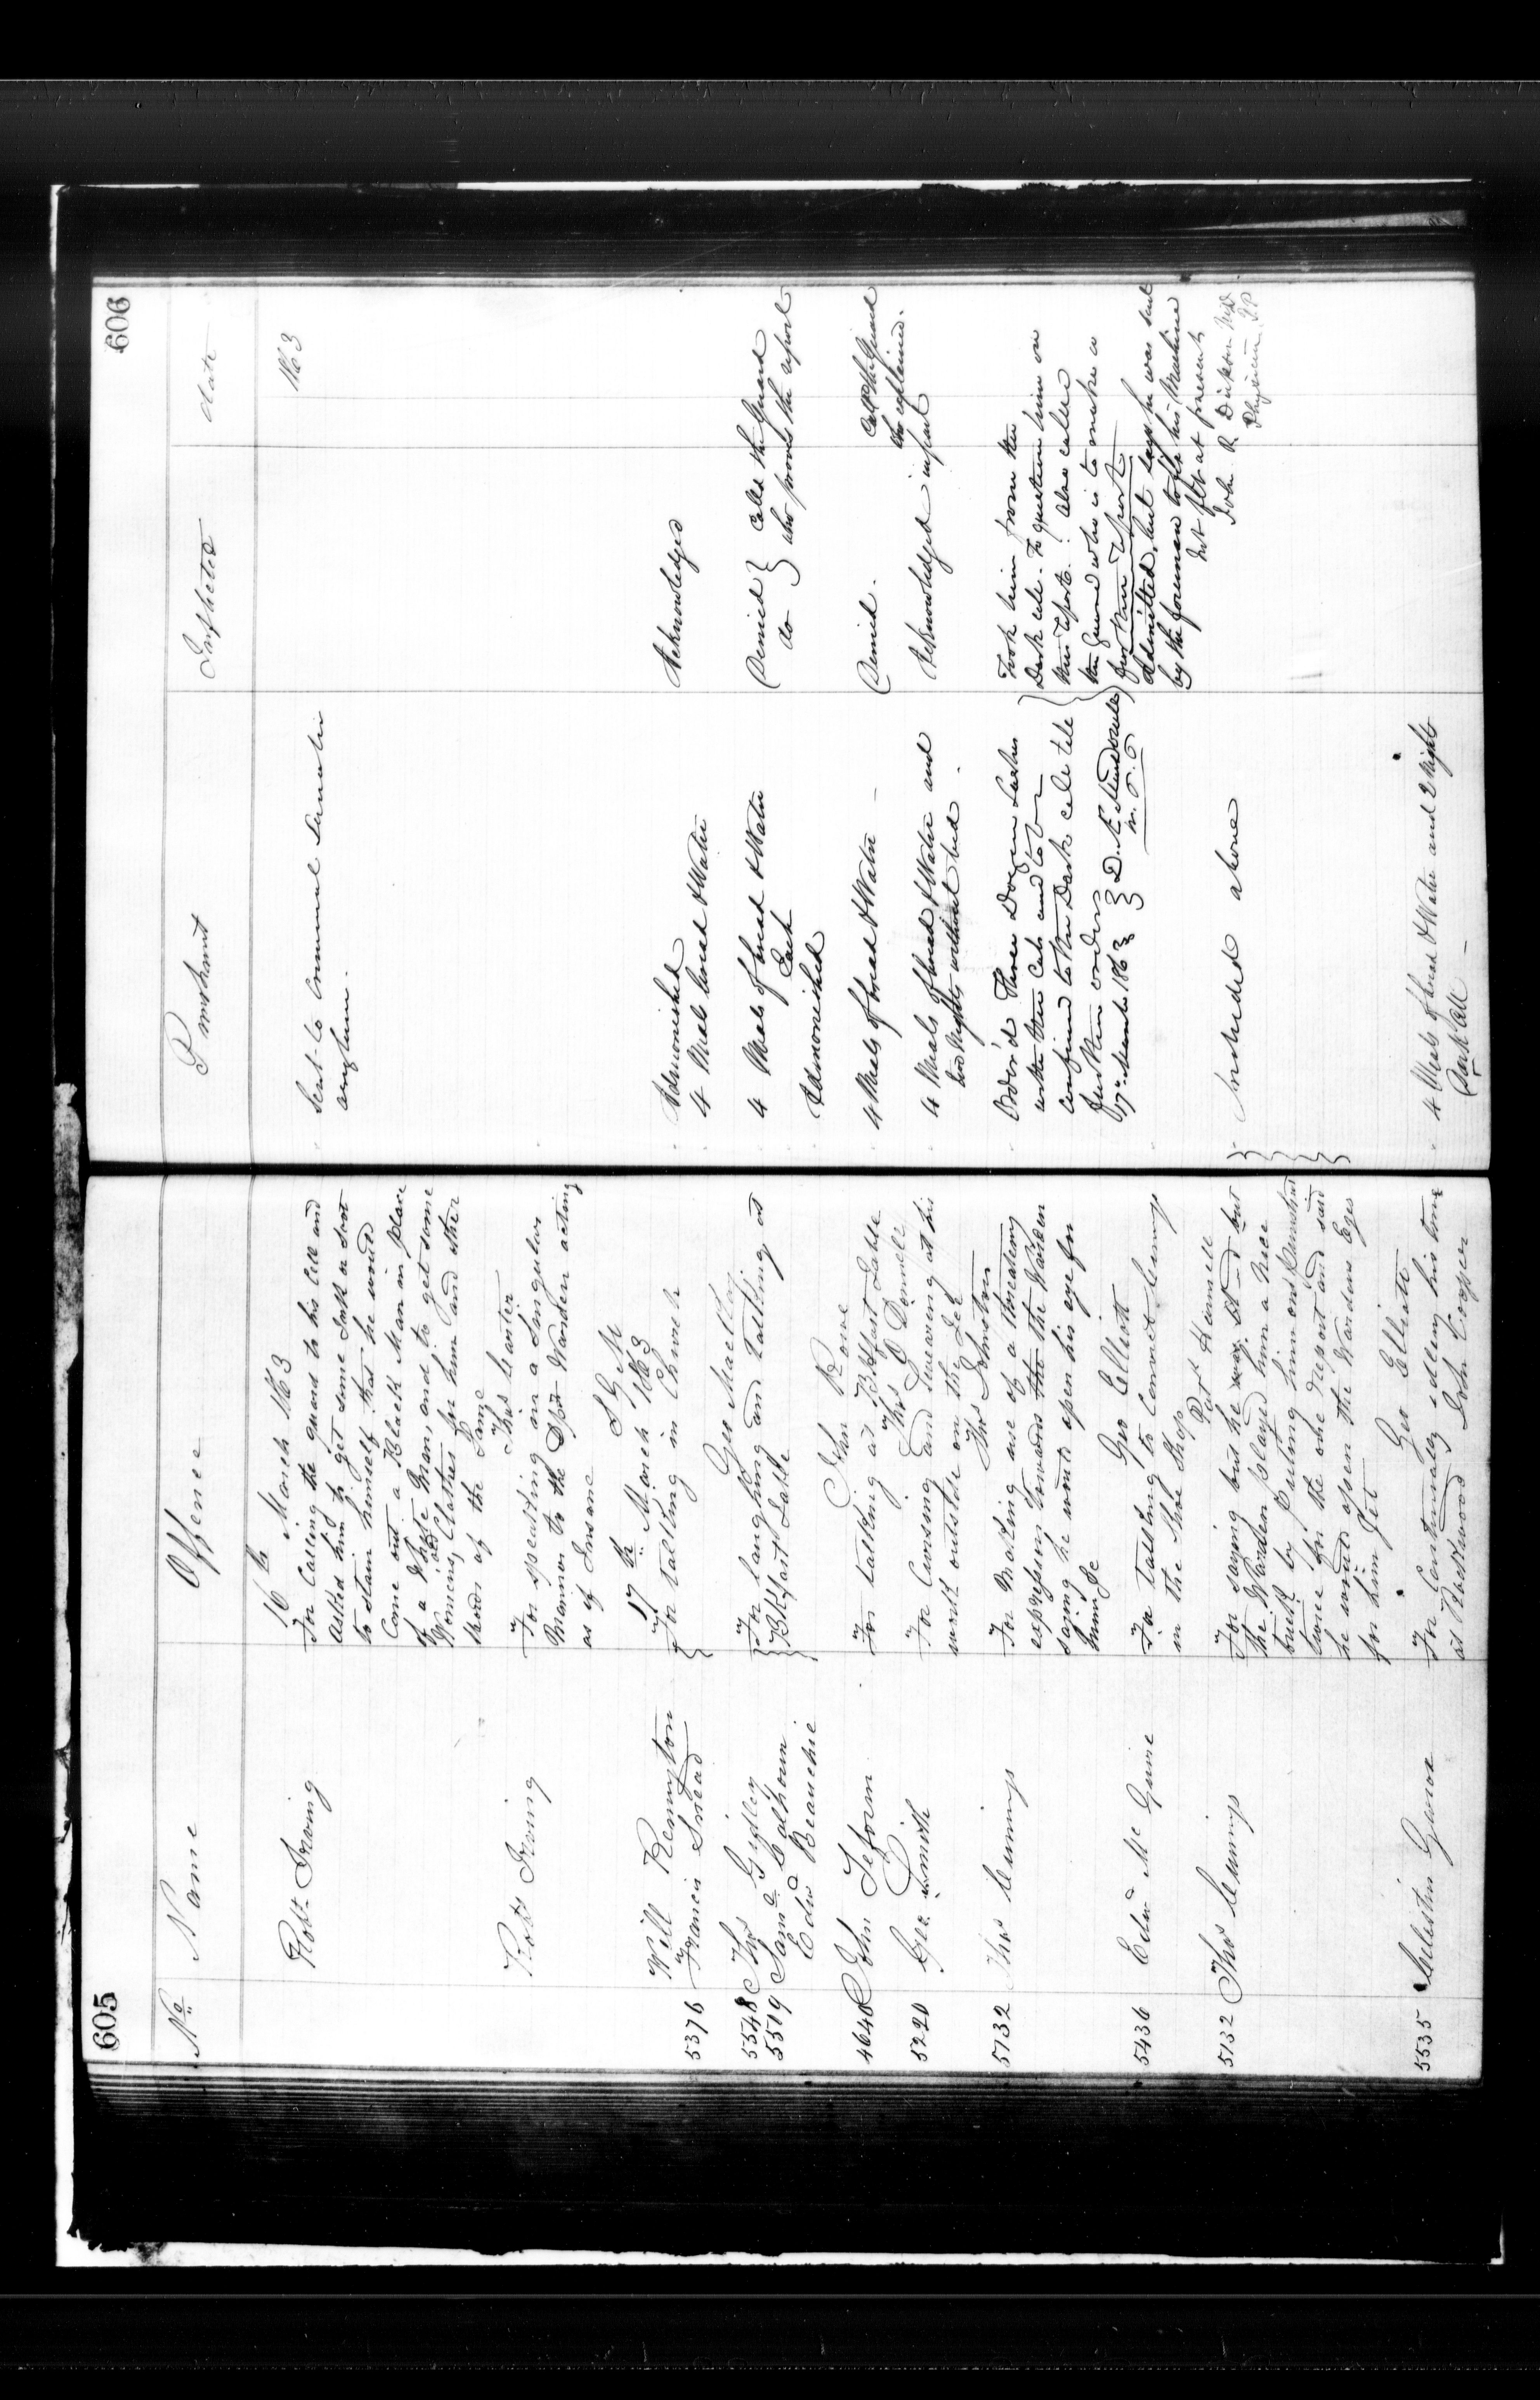 605
No Name Offence
16th March 1863
Robt Irving For Calling the guard to his Cell and
asked him to get some Salt a soot
to stain himself that he would
Come out a Black Man in place
of a White Man, and to get some
Womens old Clothes for him and other
words of the Same
Thos McCarter
Robt Irving For speaking in a Singular
Manner to the Dpu Warden acting
as if Insane
17th March 1863
Will Remington For talking in Church
5376 Francis Snead
Geo Mackay
5548 Thos Gridley For laughing and talking at
5519 Saml Calhoun Bkfast Table
Edwd Beauchie
John Rowe
4640 John Teform For talking at Bkfast Table
Thos O Donnelly
5220 Geo Smith For Cursing and Swearing at his
work outside on the Ice
Thos Johnston
5132 Thos Cummings For Making use of a threatening
expression towards the the Warden
saying he would open his eye for
him
Geo Elliott
5436 Edwd McGuire For talking to Convict Cummings
in the Shoe Shop
Patk Hammell
5132 Thos Cummings For saying but he
the Warden played him a nice
trick by Puting him and Punished
twice for the one Report and said
he would open the Wardens Eyes
for him Yet
Geo Elliott
5535 Celestin For Continualy idling his time
at Rockwood John Cooper
606
Punishment Inspected date
1863
Sent to Criminal Lunatic
asylum.
Admonished
4 Meals bread & Water Acknowledges
4 Meals of bread & Water Denied Called the Guard
Each do who proved the report
Admonished
4 Meals of bread & Water Denied. Called the Guard
who explained.
4 Meals of bread & Water and Acknowledged in part
two Nights without bed.
Order'd Three Dozen Lashes
with the Cats and to be
confined to the Dark Cell till
further orders
17th March 1863 D. Æ Macdonell
W. P. P
Took him from the
Dark Cell to question him on
this Report. Also called
the Guard who is to make a
further report
Admitted, but says he was sent
by the foreman to fix his Machine
Not fit at present
John R Dickson MD
Physician PP
Included above
4 Meals of bread & Water and 2 Nights
Dark Cell